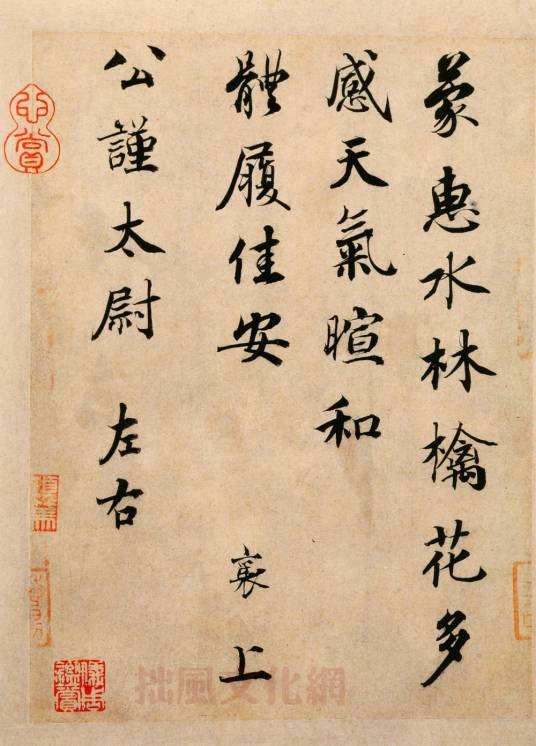 蒙惠水林檎花多
感天氣暄和
體履佳安
襄上
公謹太尉 左右
拙風文化網